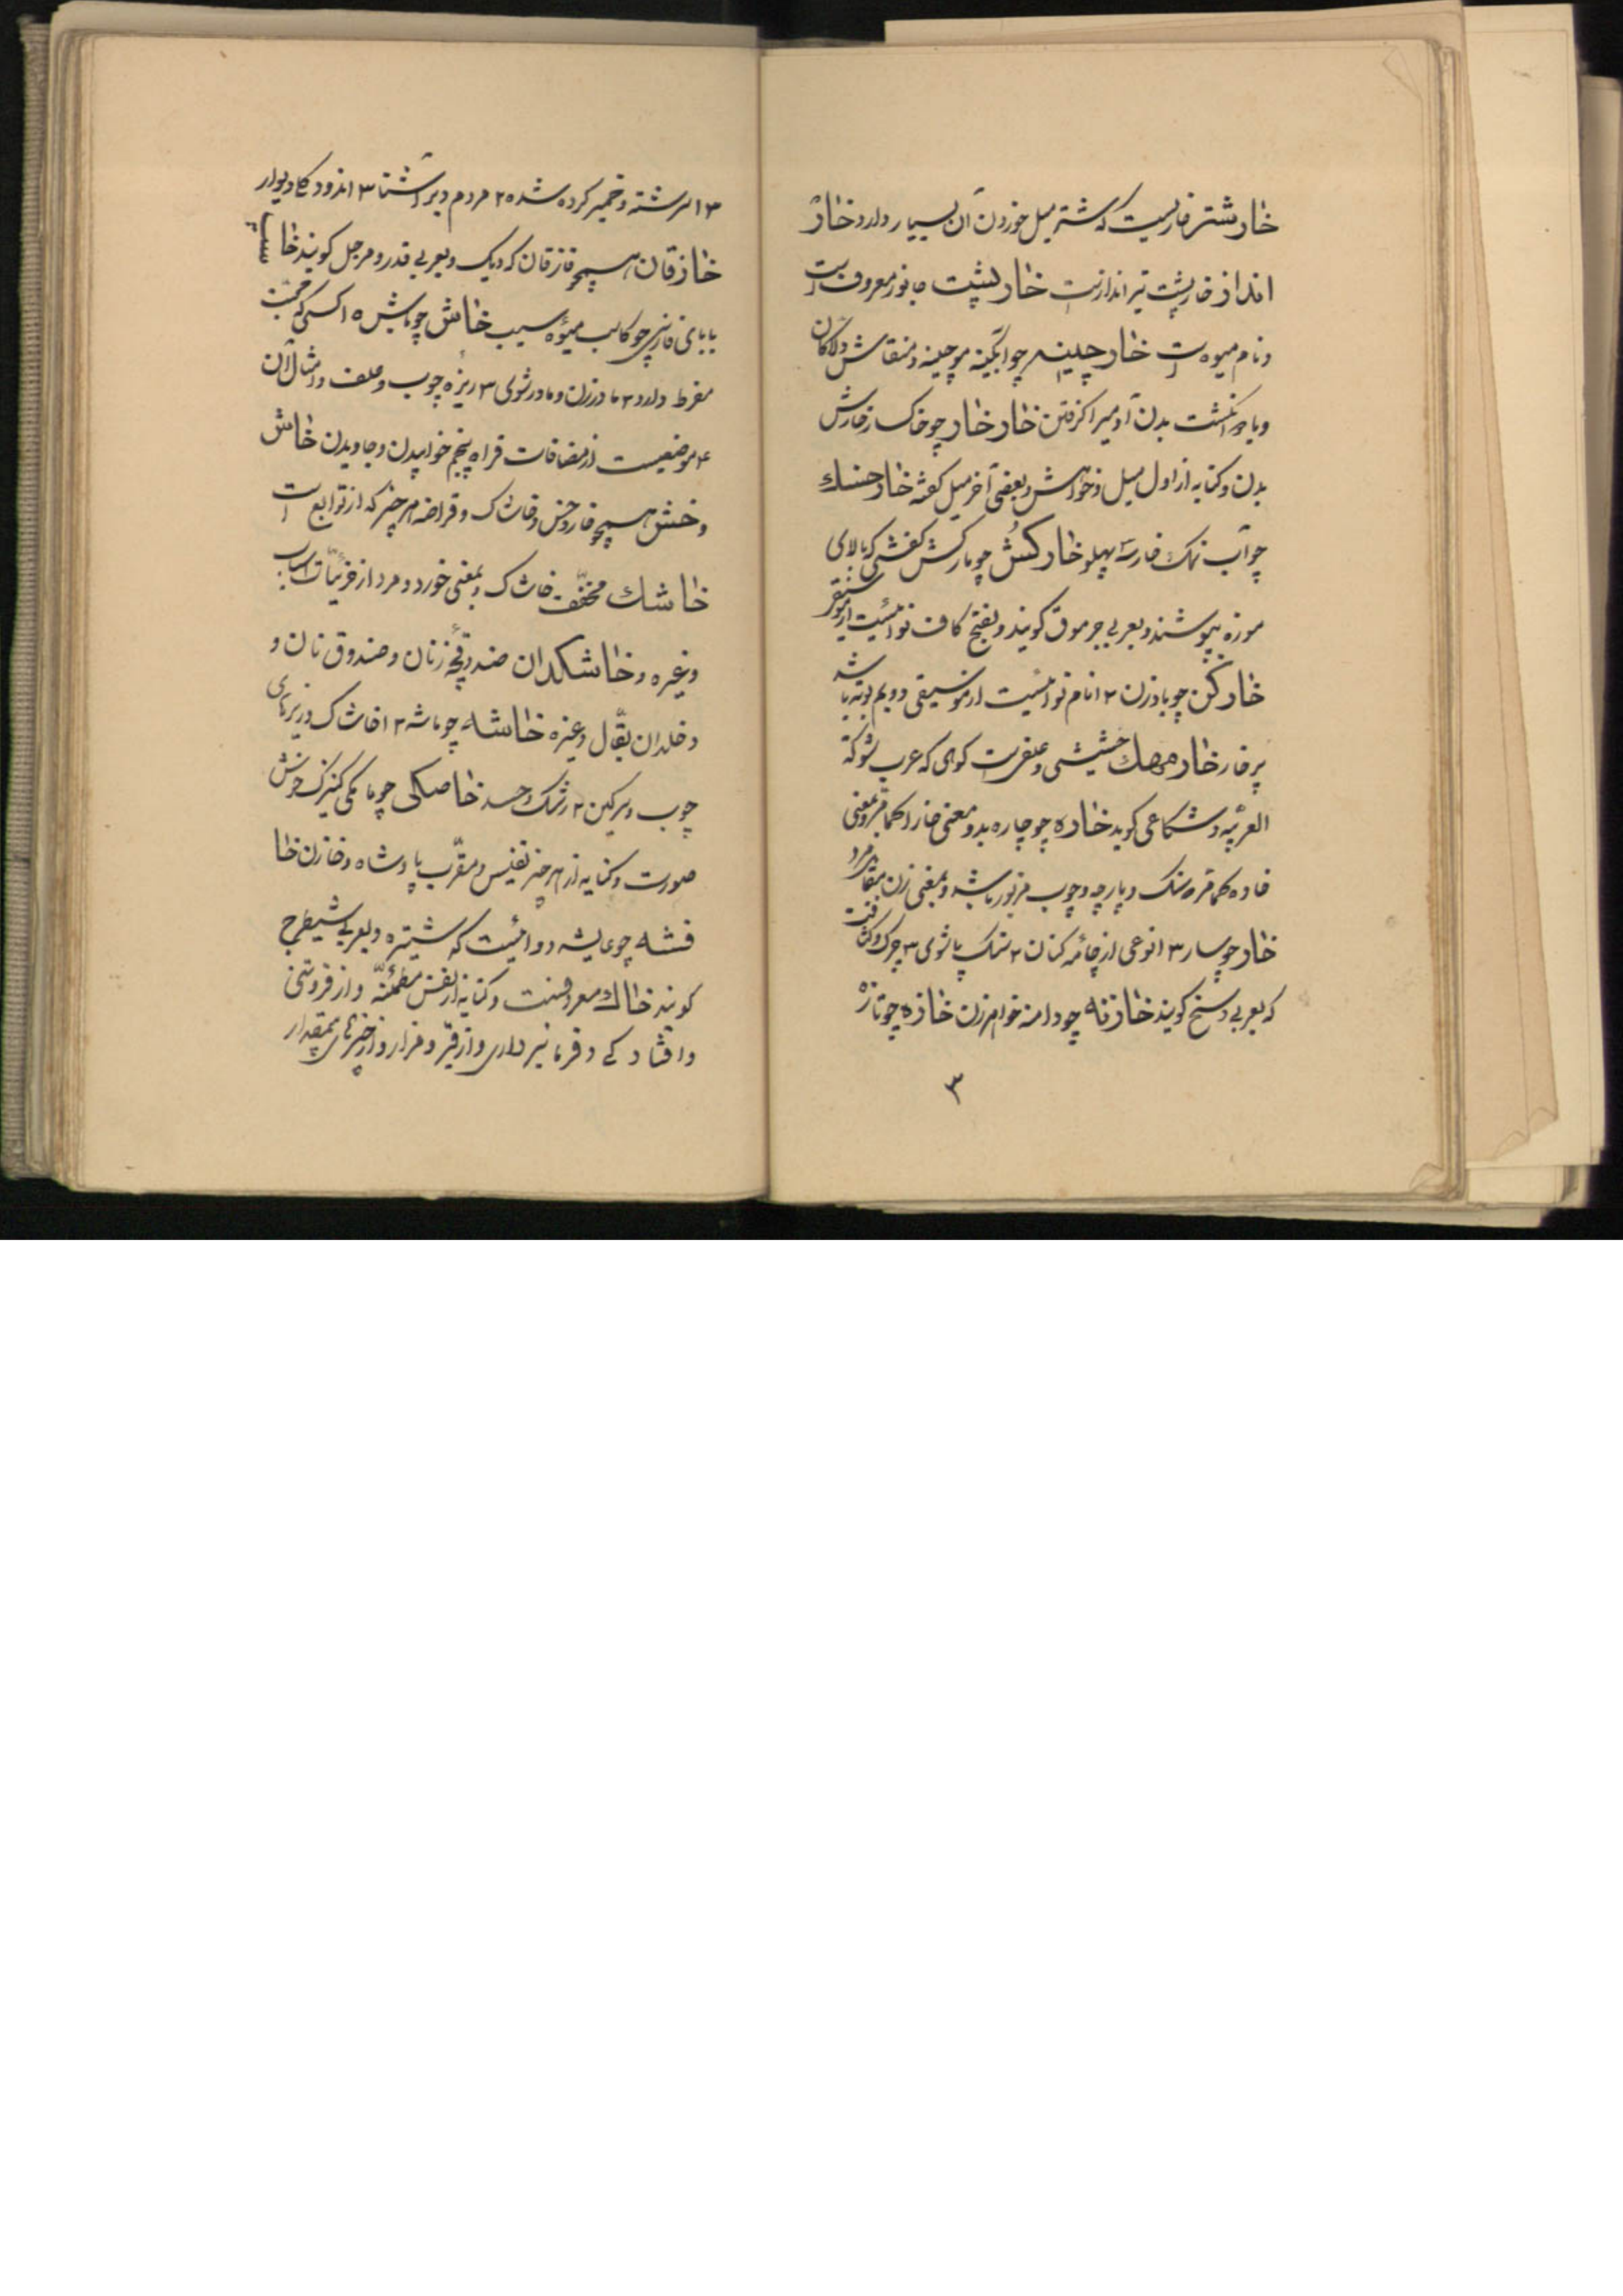 خارشتر خاریست که شتر میل خوردن آن بسیار دارد و خار
انداز خارپشت تیرانداز است خارپشت جانور معروف است
و نام میوه است خارچینه چو آبگینه موچینه و منقاش دلاکان
و با دو انگشت بدن آدمیرا گرفتن خارخار چو خاکسار خارش
بدن و کنایه از اول میل و خواهش و بعضی آخر میل گفته خارخسك
چو آب نمك خار سه پهلو خارکش چو بارکش کفشی که بالای
موزه بپوشند و بعربی جرموق گویند و بفتح کاف نوائیست از موسیقی
خارکن چو بادزن ۲ انام نوائیست از موسیقی دویم بوته باشد
پرخار خارمهك خشیشی و علفی است کوهی که عرب شوکة
العربیه و شکاعی گوید خاره چو چاره بدو معنی خارا کمامر و بمعنی
خاده کمامر و سنك و پارچه و چوب مزبور باشد و بمعنی زن مقابل مرد
خاز چو ساز ۳ انوعی از جامه کتان ۲ نمك پاشوی ۳ چرك و کثافت
که بعربی وسخ گویند خازنه چو دامنه خواهر زن خازه چو تازه
۳
۳ اسرشته و خمیر کرده شده ۲ مردم دیر آشنا ۳ اندود گاه دیوار
خازقان همچو قازقان که دیگ و بعربی قدر و مرجل گویند خا سیب
بابای فارسی چو کالب میوه سیب خاش چو باش ۵ اکسی که محبت
مفرط دارد ۲ مادرزن و مادرشوی ۳ ریزه چوب و علف و امثال آن
۴ موضعیست از مضافات فراه پنجم خوابیدن و جاویدن خاش
و خش همچو خار و خس و خاشاک و قراضه هر چیز که از توابع است
خاشك مخفف خاشاک و بمعنی خورد و مرد از جزئیات اسباب
و غیره و خاشکدان صندوقچه زنان و صندوق نان و
و خلدان بقال و غیره خاشه چو ماشه ۳ اخاشاک و ریزهای
چوب و سرگین ۲ رشك و حسد خاصکی چو ماکی کنیزک خوش
صورت و کنایه از هر چیز نفیس و مقرب پادشاه و خازن خا
فشه چو عایشه دوائیست که شیتره و بعربی شیطرج
گویند خاك معروفست و کنایه از نفس مطمئنه و از فروتنی
و افتادگی و فرمانبرداری و از قبر و مزار و از چیزهای بیمقدار